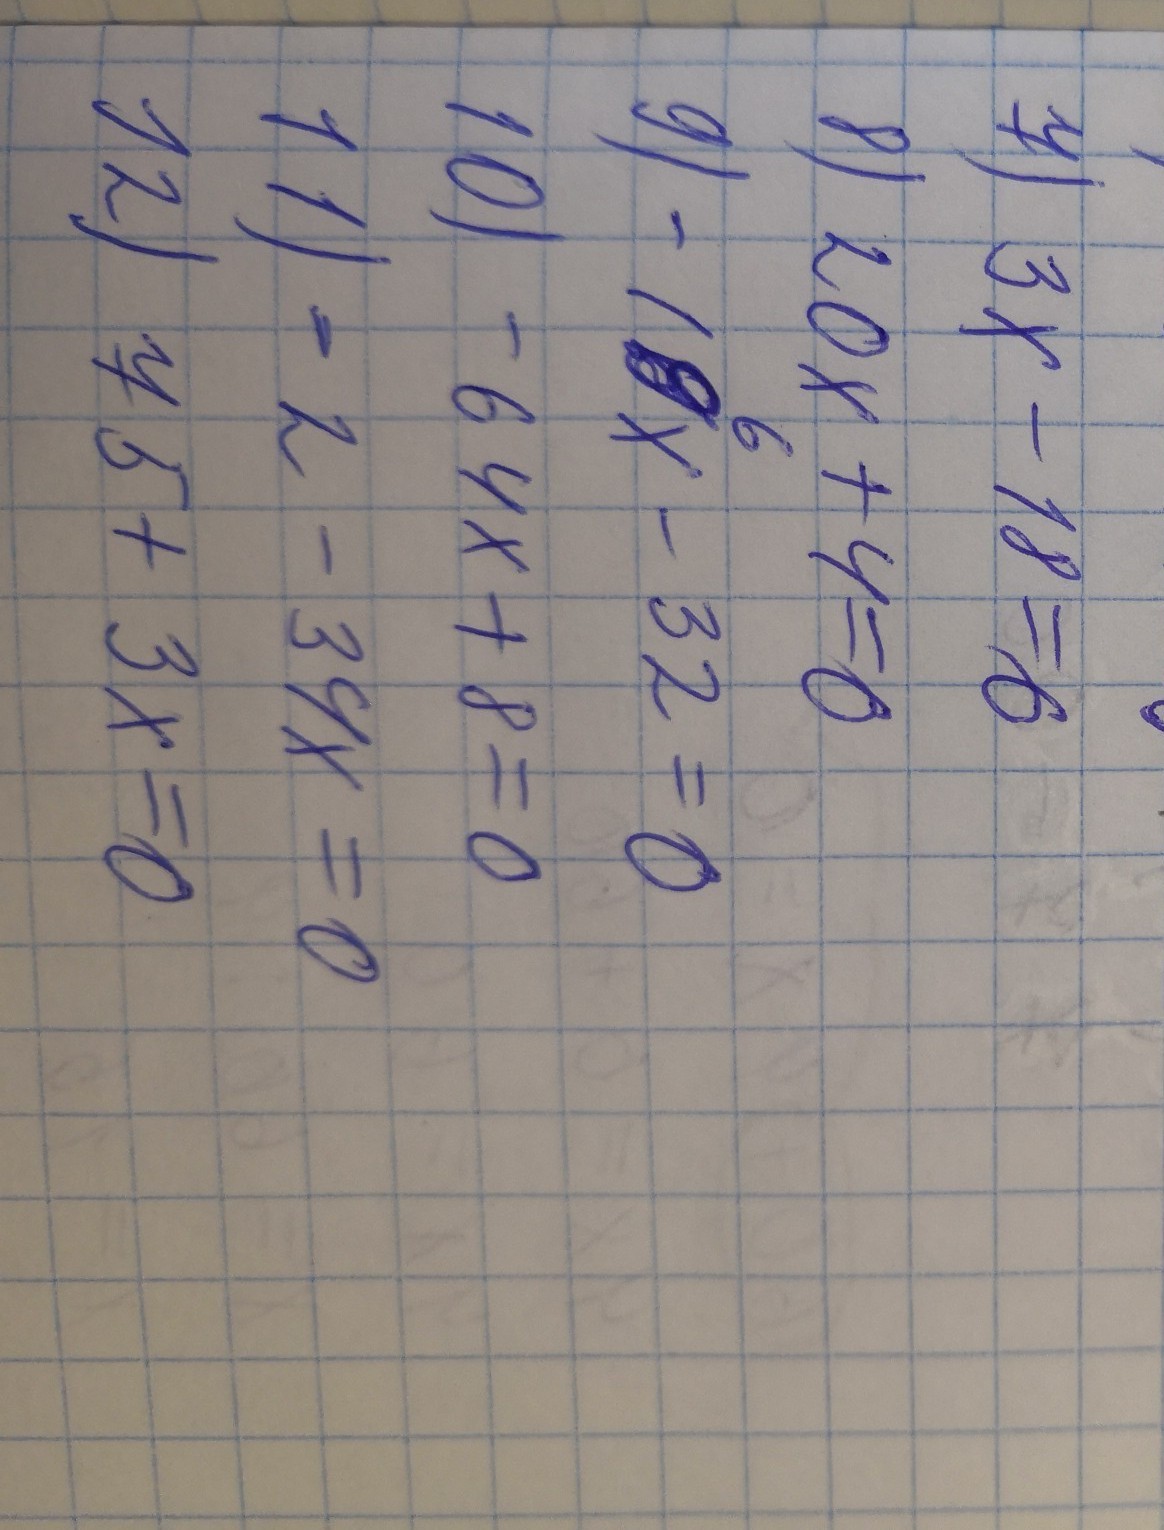 7) 3x - 18 = 6
8) 20x + 4 = 0
9) - 16x - 32 = 0
10) - 64x + 8 = 0
11) - 2 - 34x = 0
12) 75 + 3x = 0